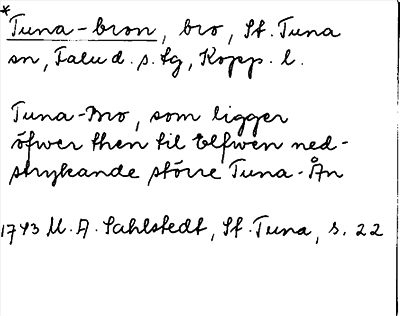 *
Tuna-bron, bro, St. Tuna
sn, Falu d. s. lg, Kopp. l.
Tuna-Bro, som ligger
öfwer then til Elfwen ned-
strykande större Tuna-Ån
1743 U. A. Sahlstedt, St. Tuna, s. 22